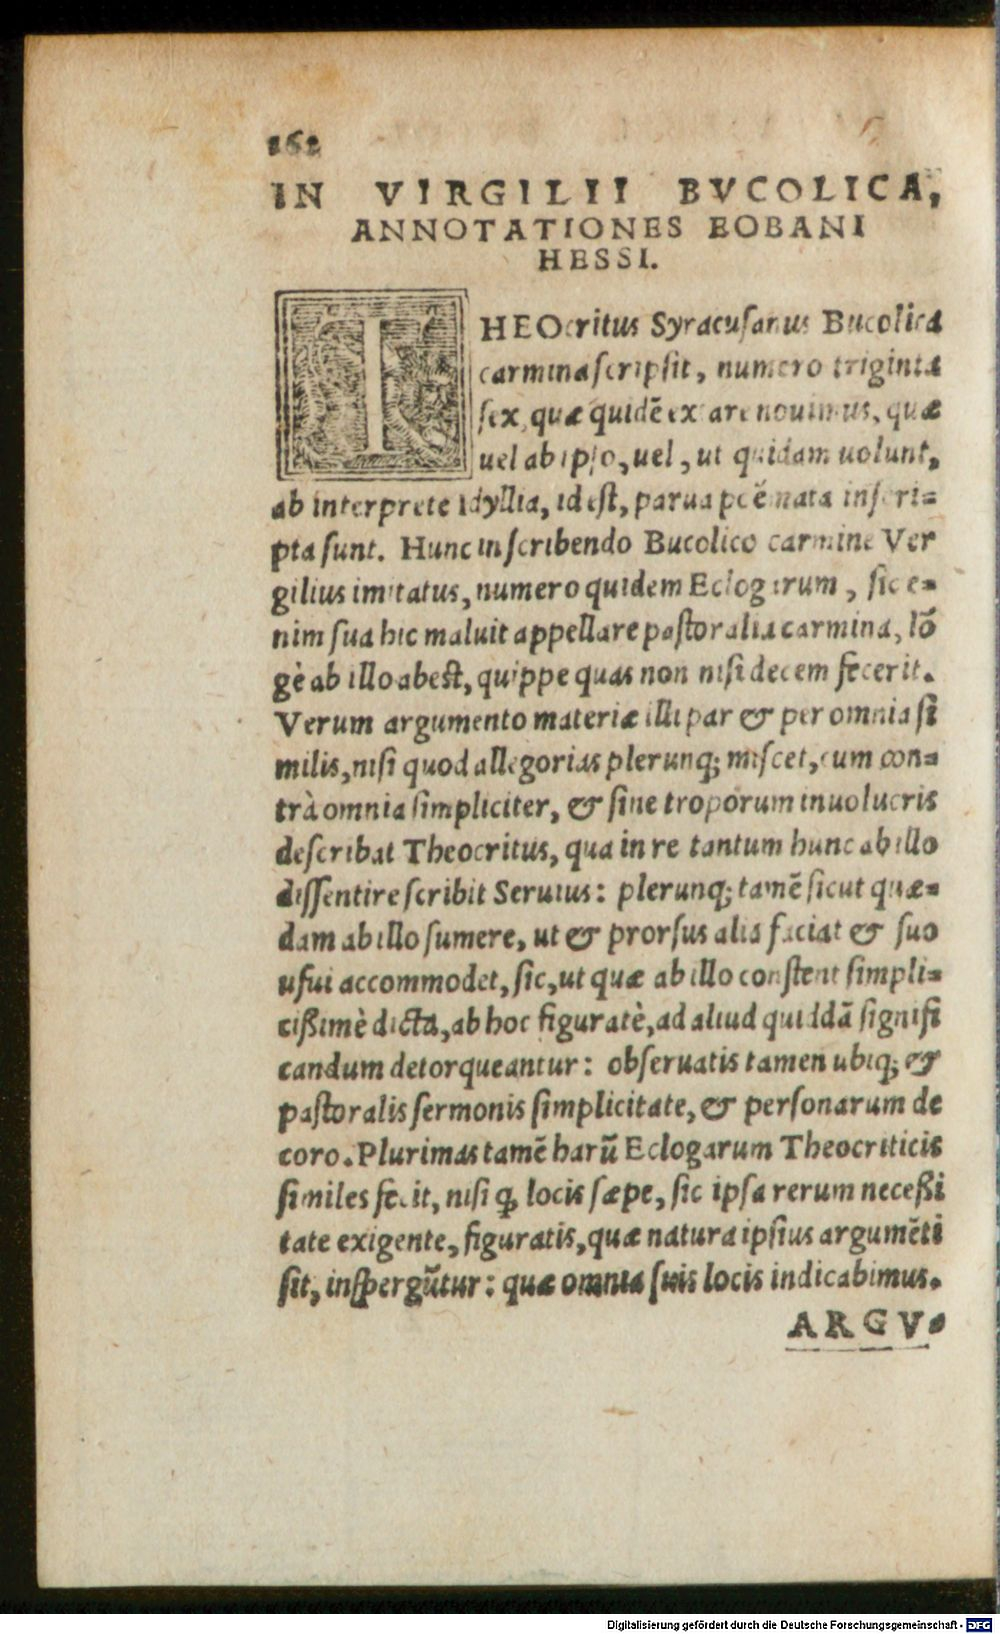 162
IN VIRGILII BVCOLICA,
ANNOTATIONES EOBANI
HESSI.
THEOcritus Syracusanus Bucolica
carmina scripsit, numero triginta
sex, quæ quidē extare nouimus, quæ
uel ab ipso, uel, ut quidam uolunt,
ab interprete Idyllia, id est, parua poēmata inscri=
pta sunt. Hunc in scribendo Bucolico carmine Ver
gilius imitatus, numero quidem Eclogarum, sic e=
nim sua hic maluit appellare pastoralia carmina, lō
gè ab illo abest, quippe quas non nisi decem fecerit.
Verum argumento materiæ illi par & per omnia si
milis, nisi quod allegorias plerunq; miscet, cum con=
trà omnia simpliciter, & sine troporum inuolucris
describat Theocritus, qua in re tantum hunc ab illo
dissentire scribit Seruius: plerunq; tamē sicut quæ=
dam ab illo sumere, ut & prorsus alia faciat & suo
usui accommodet, sic, ut quæ ab illo constent simpli=
cißimè dicta, ab hoc figuratè, ad aliud quiddā signifi
candum detorqueantur: obseruatis tamen ubiq; &
pastoralis sermonis simplicitate, & personarum de
coro. Plurimas tamē harū Eclogarum Theocriticis
similes fecit, nisi ꝙ locis sæpe, sic ipsa rerum neceßi
tate exigente, figuratis, quæ natura ipsius argumēti
sit, inspergūtur: quæ omnia suis locis indicabimus.
ARGV=
Digitalisierung gefördert durch die Deutsche Forschungsgemeinschaft - DFG